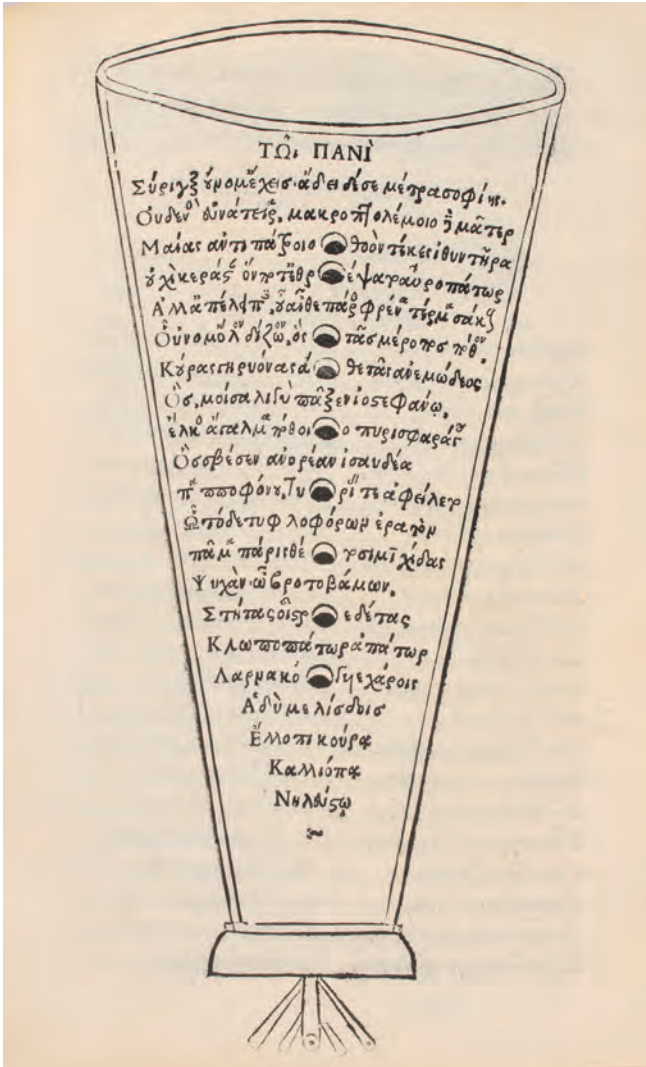 Τῼ͂, ΠΑΝῚ
Σύριγξ οὔνομ' ἔχεις· ἄδει δέ σε μέτρα σοφίης.
Οὐδενὸς εὐνάτειρα, μακροπτολέμοιο δὲ μᾶτερ
Μαίας ἀντιπάτροιο θοὸν τέκες ἰθυντῆρα
οὐχὶ κεράσταν ὅν ποτε θρέψατο ταυροπάτωρ
Ἀλλ' πάρος φρένα τέρμα σάκους
Οὔνομ' ὅλον δίζωον, ὃς τᾶς μέροπος πόθον.
Κούρας γηρυόνας ἆθε τᾶς ἀνεμώδεος
Ὃς, μοίσᾳ λιγὺ πᾶξεν ἰοστεφάνῳ,
ἕλκος ἄγαλμα πόθοιο πυρισφαράγου
Ὃς σβέσεν ἀνορέαν ἰσαυδέα
παπποφόνου, Τυρίας τε ἀφείλετο
Ὧ τόδε τυφλοφόρων ἐρατὸν
πᾶμα πάρις θέτο σιμιχίδας
Ψυχὰν ὦ βροτοβάμων.
Στήτας οἶστρε
Κλωποπάτωρ ἀπάτωρ
Λαρνακόγυιε χάροις
Ἁδὺ μελίσδοις
Ἔλλοπι κούρᾳ
Καλλιόπᾳ
Νηλεύστῳ